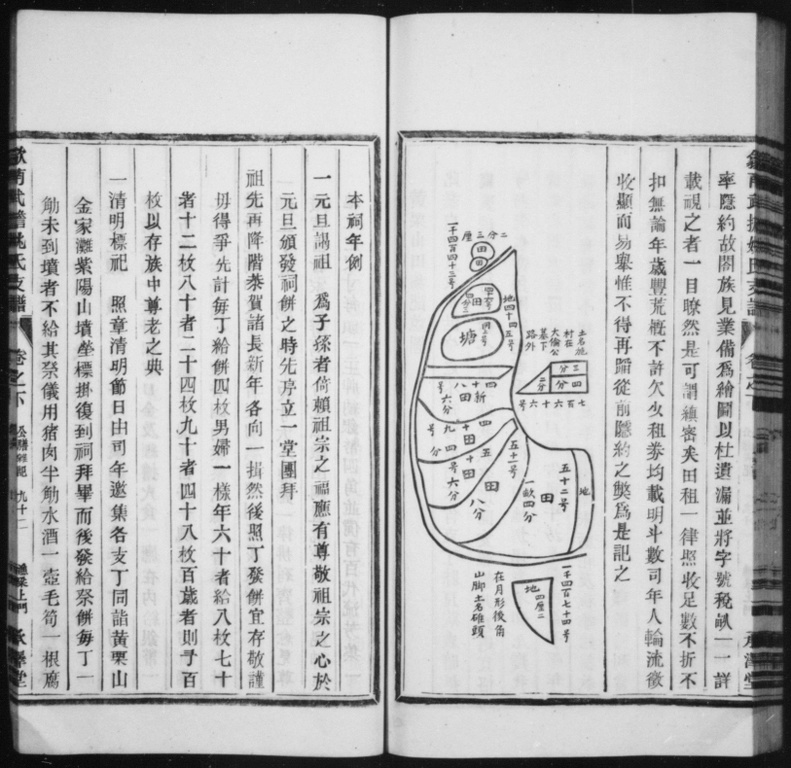 率隱約故閤族見業備為繪圖以杜遺漏並將字號稅畝一一詳
載視之者一目瞭然是可謂縝密矣田租一律照收足數不折不
扣無論年歲豐荒概不許欠少租券均載明斗數司年人輪流徵
收顯而易舉惟不得再蹈從前隱約之弊為是記之
二分三厘
一千四百四十二号
田
田
田
塘
地四十四五号
土名施
村在
大倫公
墓下
路外
三分
四分
二分
七百六十六号
四十八号
新田
六分
四十田
九分
四十田
六分
五田
八分
五十一号
一畝四分
五十二号
田
地
一千四百七十四号
地四厘二
在月形後角
山脚土名碓頭
本祠年例
一元旦謁祖 為子孫者倚賴祖宗之福應有尊敬祖宗之心於
元旦頒發祠餅之時先序立一堂團拜
祖先再降階恭賀諸長新年各向一揖然後照丁發餅宜存敬謹
毋得爭先計每丁給餅四枚男婦一樣年六十者給八枚七十
者十二枚八十者二十四枚九十者四十八枚百歲者則予百
枚以存族中尊老之典
一清明標祀 照章清明節日由司年邀集各支丁同詣黃栗山
金家灘紫陽山墳塋標掛復到祠拜畢而後發給祭餅每丁一
觔未到墳者不給其祭儀用豬肉半觔水酒一壺毛筍一根腐
卷之下
九十二
承澤堂